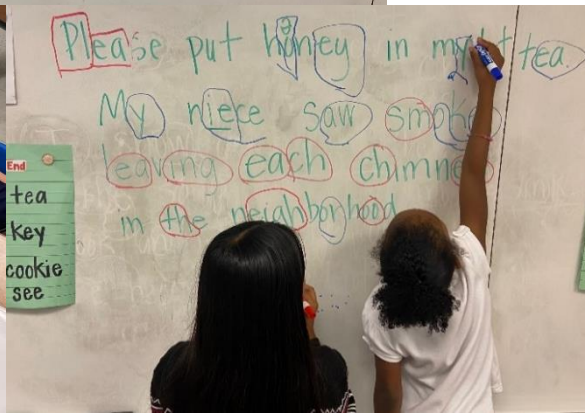 Please put honey in my tea.
My niece saw smoke
leaving each chimney
in the neighborhood
End
tea
key
cookie
see